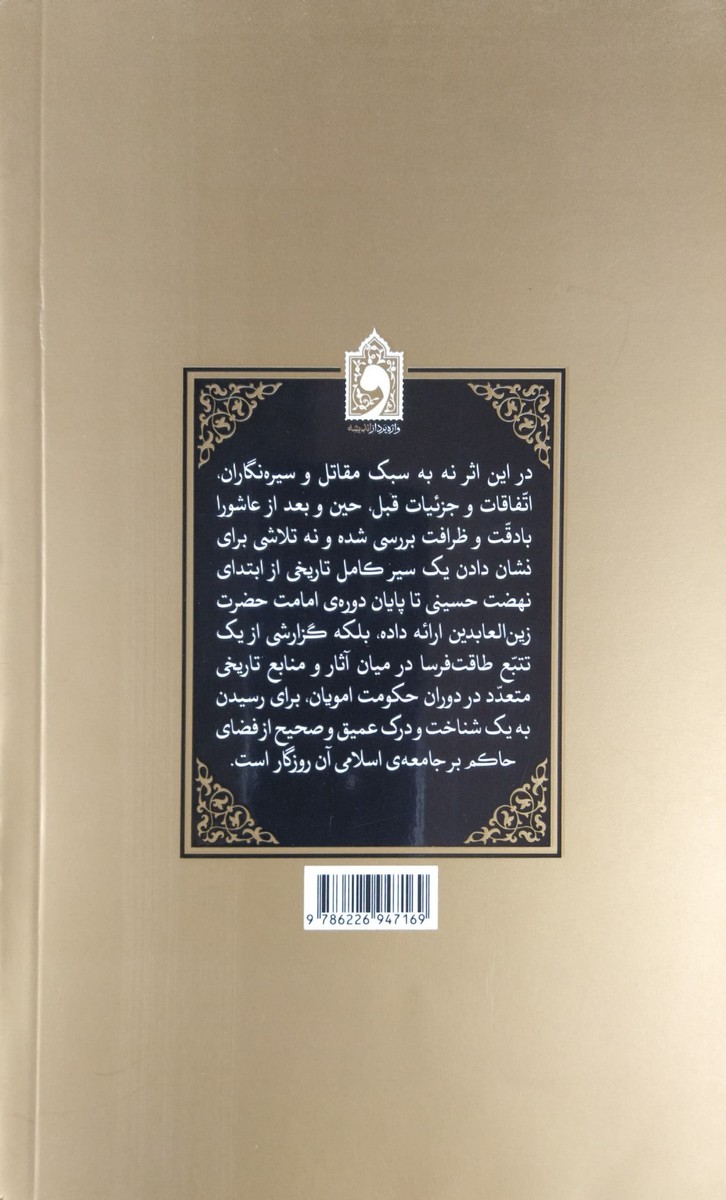 و
واژه‌پرداز اندیشه
در این اثر نه به سبک مقاتل و سیره‌نگاران،
اتّفاقات و جزئیات قبل، حین و بعد از عاشورا
بادقّت و ظرافت بررسی شده و نه تلاشی برای
نشان دادن یک سیر کامل تاریخی از ابتدای
نهضت حسینی تا پایان دوره‌ی امامت حضرت
زین‌العابدین ارائه داده، بلکه گزارشی از یک
تتبّع طاقت‌فرسا در میان آثار و منابع تاریخی
متعدّد در دوران حکومت امویان، برای رسیدن
به یک شناخت و درک عمیق و صحیح از فضای
حاکم بر جامعه‌ی اسلامی آن روزگار است.
9 786226 947169